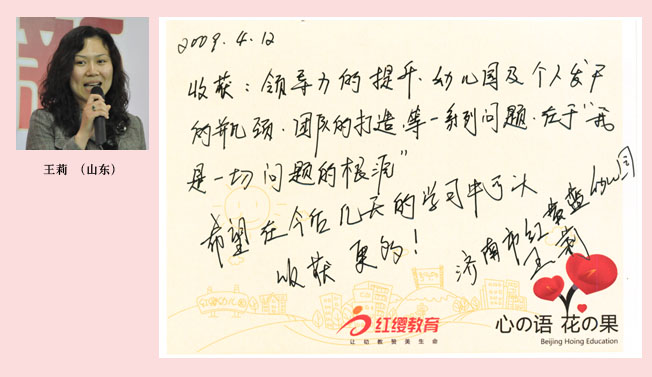 王莉 （山东）
2009.4.12
收获：领导力的提升、幼儿园及个人发展
的瓶颈、团队的打造、等一系列问题、在于“我
是一切问题的根源”
希望在今后几天的学习中可以
收获更多！
济南市红黄蓝幼儿园
王莉
红缨教育
让幼教赞美生命
心の语 花の果
Beijing Hoing Education